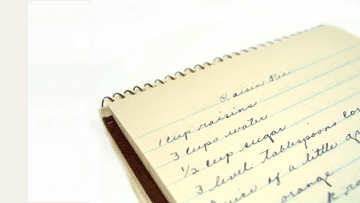 Raisin Pie
1 cup raisins
3 cups water
1/2 cup sugar
3 level tablespoons
juice of a little
orange